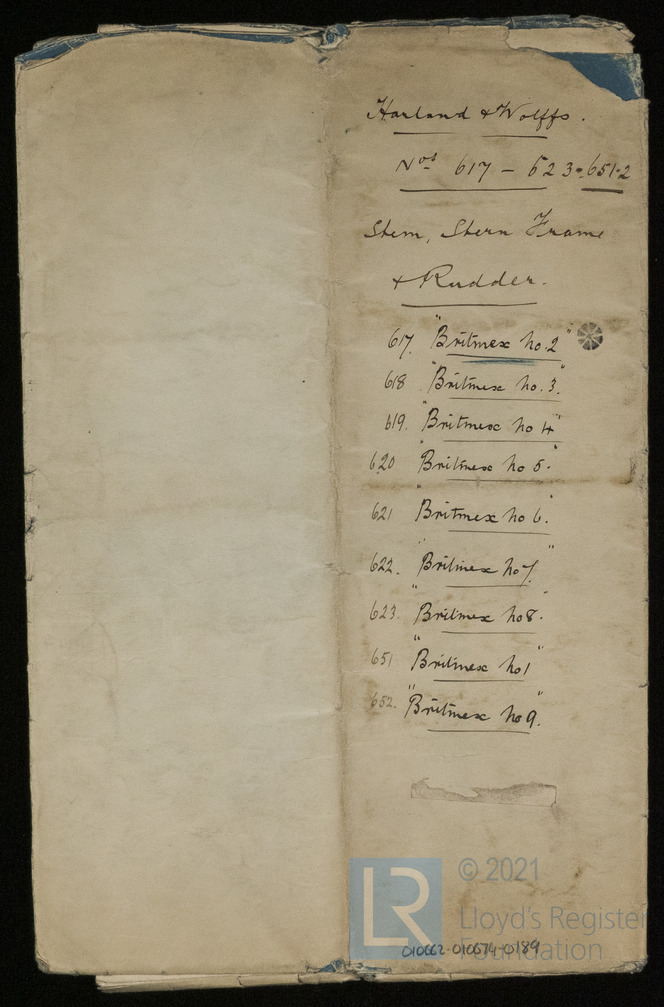 Harland & Wolffs.
Nos 617 - 623 & 651-2
Stem, Stern Frame
& Rudder.
617. "Britmex No. 2"
618 "Britmex No. 3."
619. "Britmex No 4"
620 "Britmex No 5."
621 "Britmex No 6."
622. "Britmex No 7."
623. "Britmex No 8."
651 "Britmex No 1"
652. "Britmex No 9."
LR
© 2021
Lloyd's Register
Foundation
010662-010674-0189